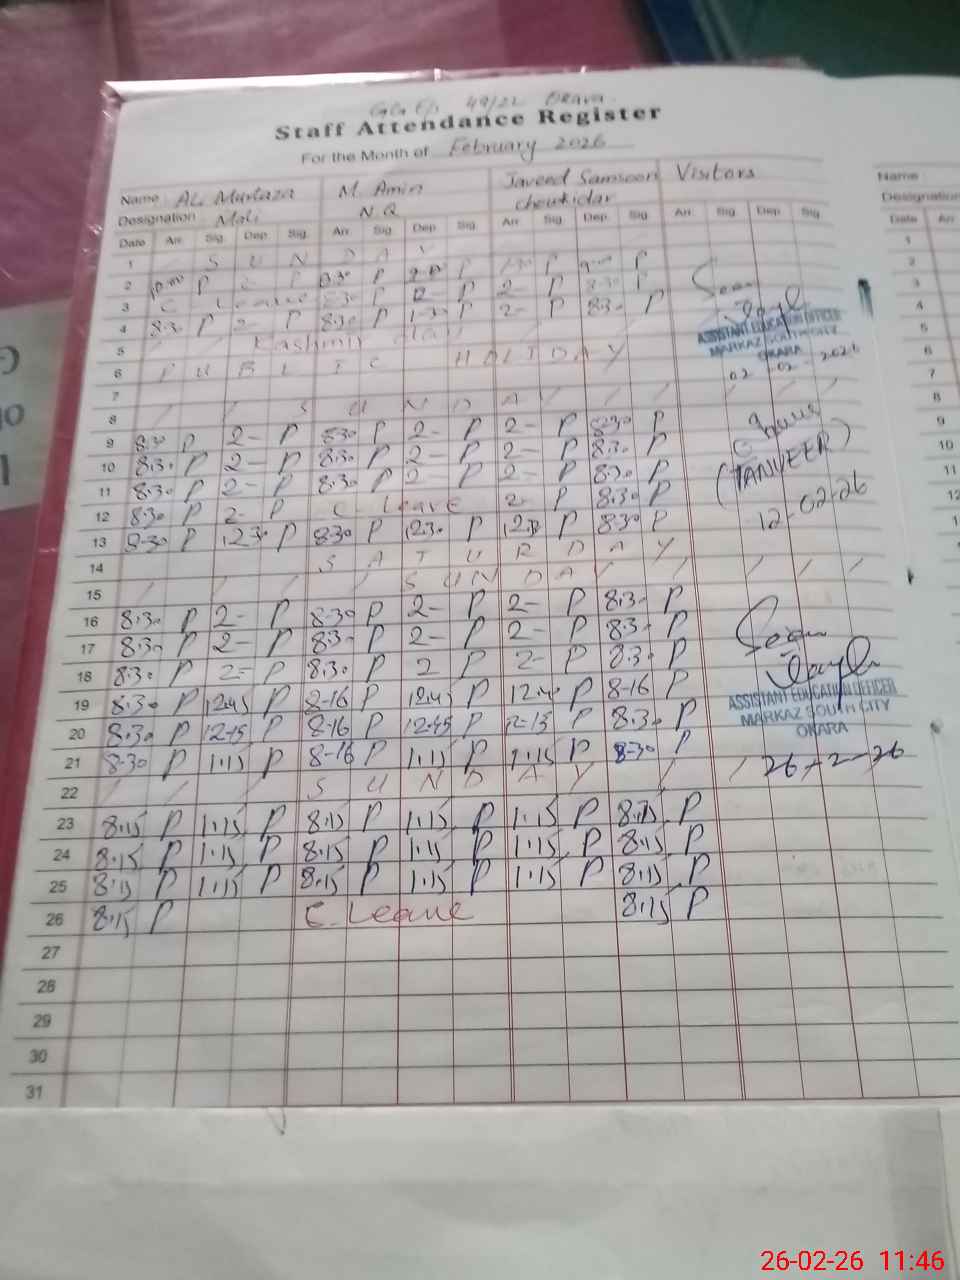 49/2L Okara
Staff Attendance Register
For the Month of February 2026
Name Ali Murtaza M. Amin Javeed Samsoon Visitors
Designation Mali N.Q chowkidar
Date Arr. Sig. Dep. Sig. Arr. Sig. Dep. Sig. Arr. Sig. Dep. Sig. Arr. Sig. Dep. Sig.
1 S U N D A Y
2 P P 8:30 P P P P
3 C Leave 8:30 P 2- P 2- P 8:30 P
4 8:30 P 2- P 8:30 P 1-30 P 2- P 8:30 P
5 Kashmir day
6 P U B L I C H O L I D A Y
7
8 / / / S U N D A / / / /
9 8:30 P 2- P 8:30 P 2- P 2- P 8:30 P
10 8:30 P 2- P 8:30 P 2- P 2- P 8:30 P
11 8:30 P 2- P 8:30 P 2- P 2- P 8:30 P
12 8:30 P 2- P C- Leave 2- P 8:30 P
13 8:30 P 12:30 P 8:30 P 12:30 P 12:30 P 8:30 P
14 S A T U R D A Y
15 / / / / S U N D A / / / / /
16 8:30 P 2- P 8-30 P 2- P 2- P 8:30 P
17 8:30 P 2- P 8:30 P 2- P 2- P 8:30 P
18 8:30 P 2- P 8:30 P 2 P 2- P 8:30 P
19 8:30 P 12:45 P 8-16 P 12:45 P 12:40 P 8-16 P
20 8:30 P 12-15 P 8-16 P 12-45 P 12-15 P 8:30 P
21 8-30 P 1:15 P 8-16 P 1:15 P 1:15 P 8-30 P
22 / / / S U N D A Y / / /
23 8:15 P 1:15 P 8:15 P 1:15 P 1:15 P 8:15 P
24 8:15 P 1:15 P 8:15 P 1:15 P 1:15 P 8:15 P
25 8:15 P 1:15 P 8:15 P 1:15 P 1:15 P 8:15 P
26 8:15 P C. Leave 8:15 P
27
28
29
30
31
ASSISTANT EDUCATION OFFICER
MARKAZ SOUTH CITY
OKARA
02 02-2026
(TANVEER)
12-02-26
ASSISTANT EDUCATION OFFICER
MARKAZ SOUTH CITY
OKARA
26-2-26
Name
Designation
Date Arr
1
2
3
4
5
6
7
8
9
10
11
12
26-02-26 11:46